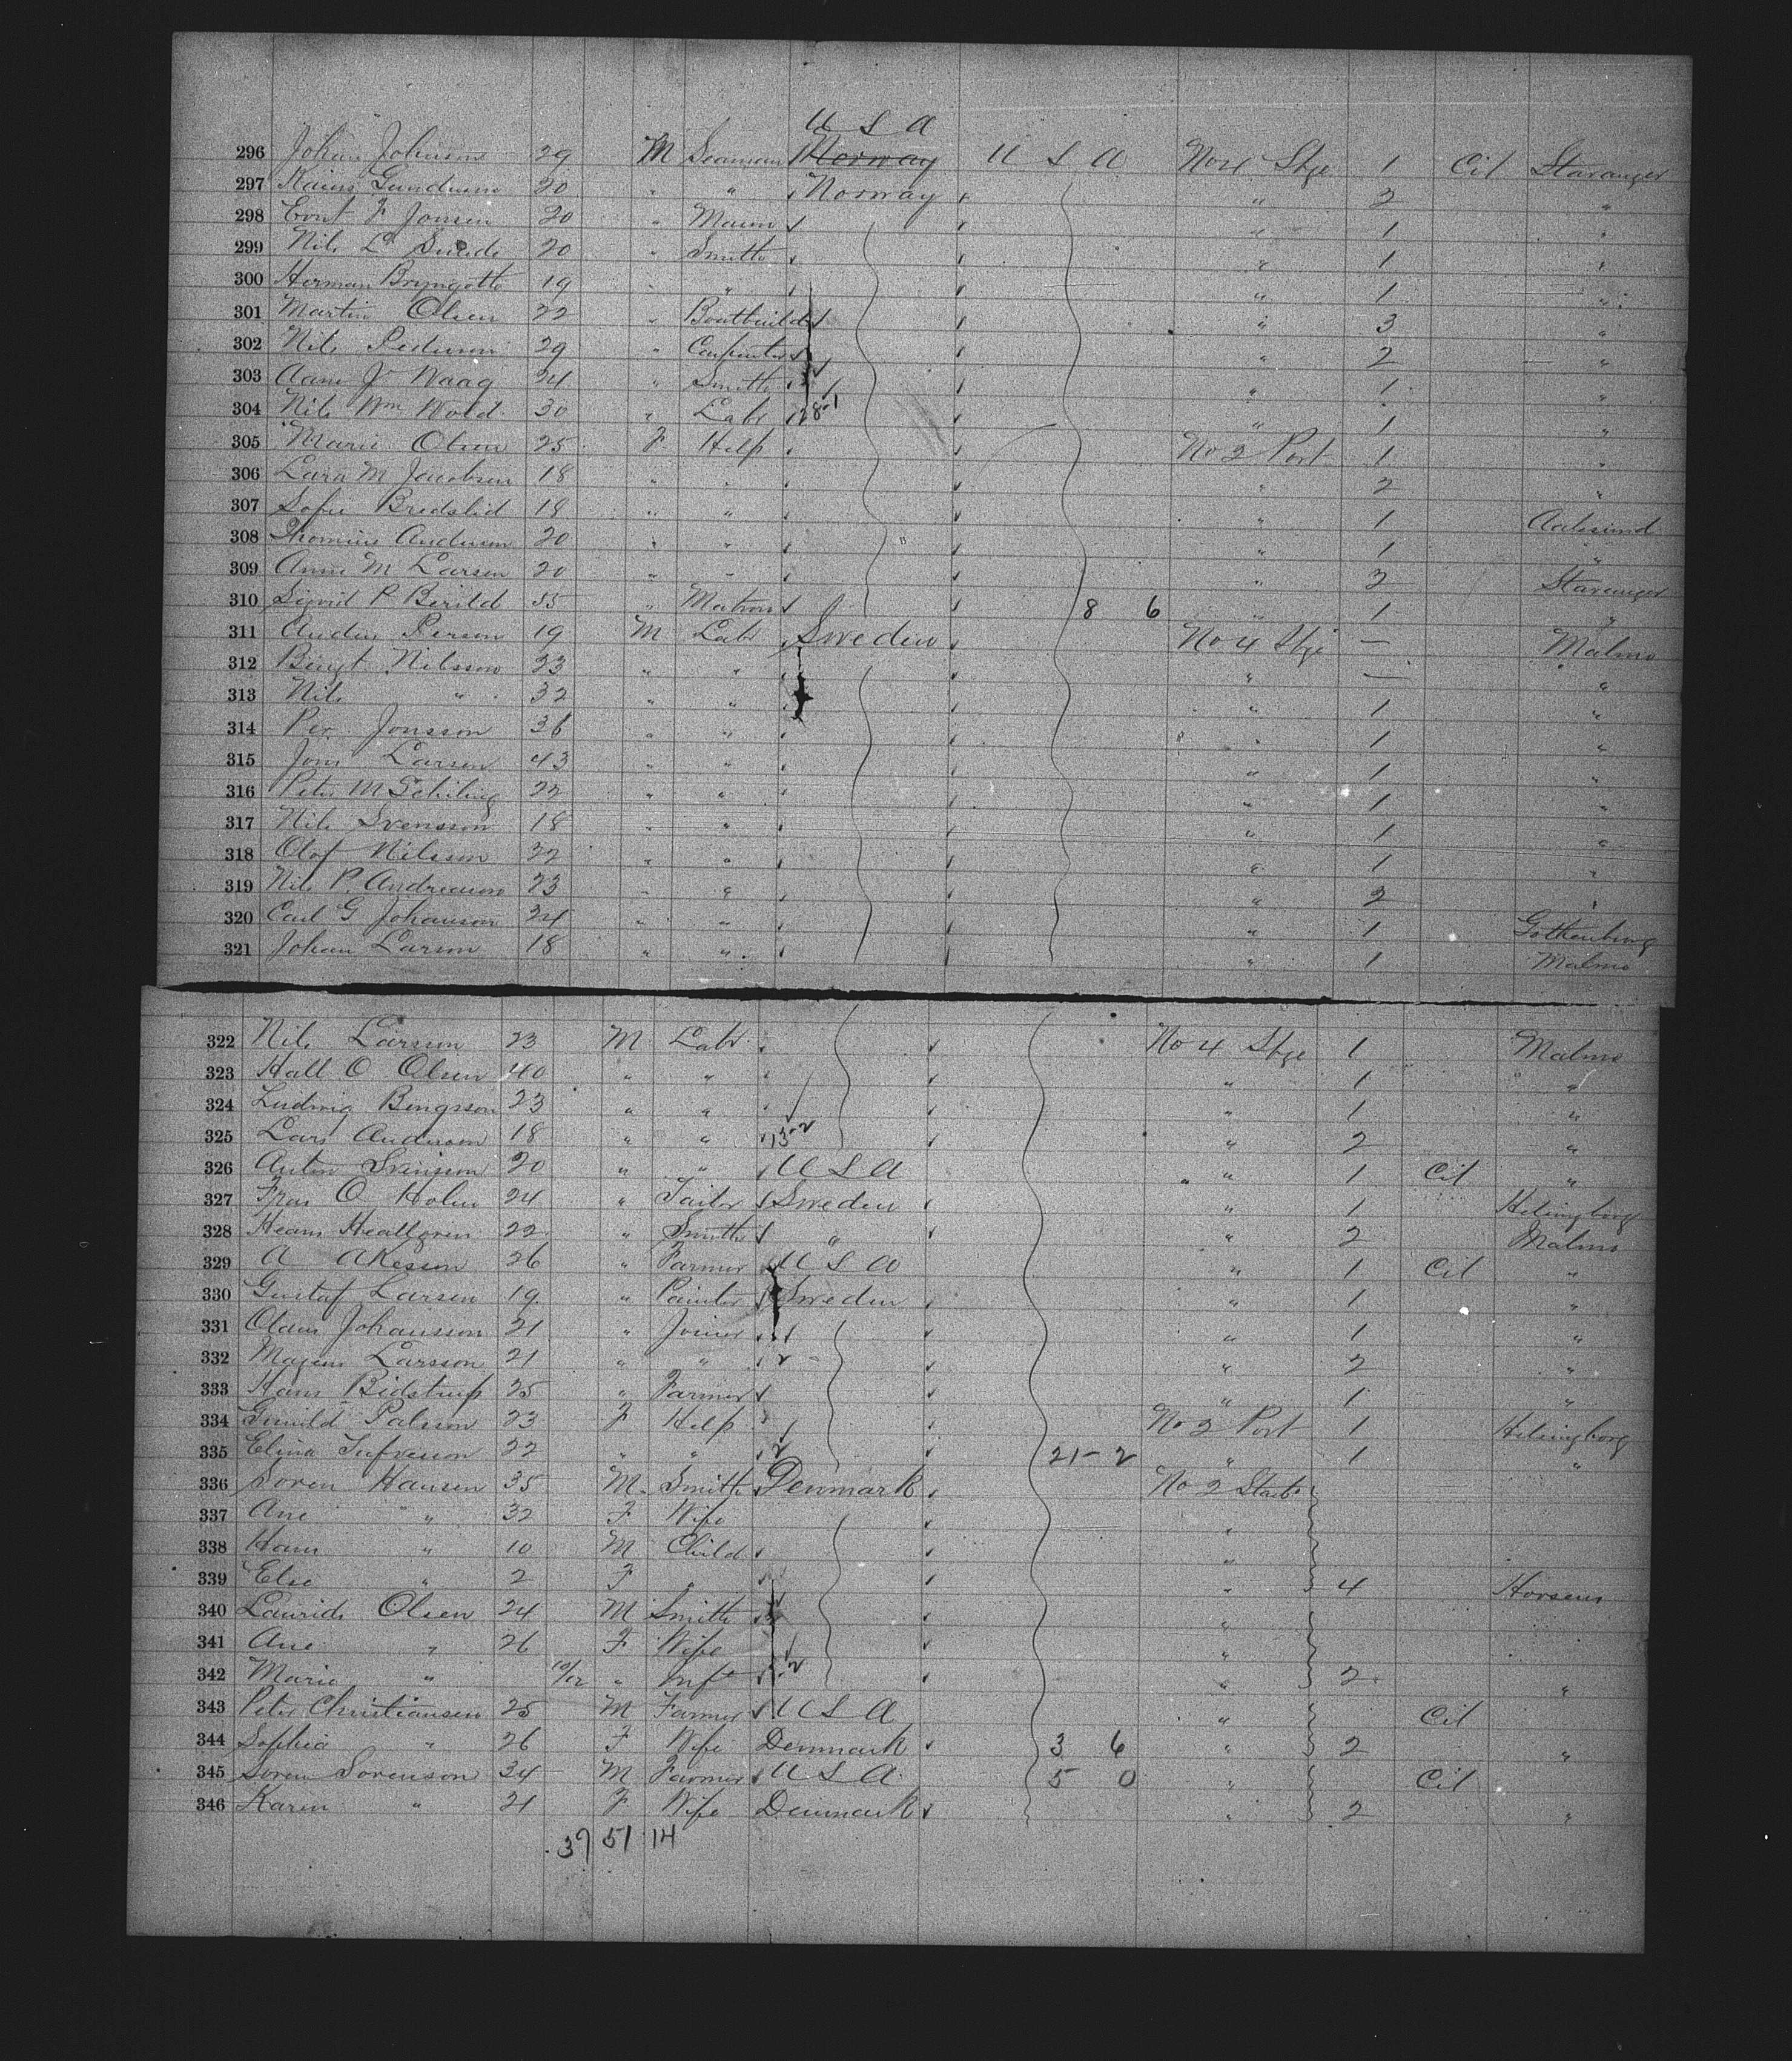 U S A
296 Johan Johnsen 29 M Seaman Norway U S A No 4 Stge 1 Cit Stavanger
297 Gundersen 20 " " Norway " 2 "
298 F Jonsen 20 " Mason " 1 "
299 Nils L 20 " Smith " 1 "
300 Herman 19 " " " 1 "
301 Martin Olsen 22 " Boatbuilder " 3 "
302 Nils Pederson 29 " Carpenter " 2 "
303 J Waag 24 " Smith " 1 "
304 Nils Wm Wold 30 " Labr 28-1 " 1 "
305 Marie Olsen 25 F Help No 2 Port 1 "
306 Lara M Jacobsen 18 " " " 2 "
307 Sofie Bredslid 18 " " " 1 Aalesund
308 Andersen 20 " " " " 1 "
309 Anne M Larsen 20 " " " 2 Stavanger
310 Sigrid P Berild 55 " Matron 8 6 " 1 "
311 Person 19 M Labr Sweden No 4 Stge — Malmo
312 Bengt Nilsson 23 " " " — "
313 Nils " 32 " " " 1 "
314 Per Jonsson 36 " " " 1 "
315 Jons Larsen 43 " " " 1 "
316 Peter M 22 " " " 1 "
317 Nils Svensson 18 " " " 1 "
318 Olof Nilsson 32 " " " 1 "
319 Nils P. Andreasson 23 " " " 2 "
320 Carl G Johanson 24 " " " 1 Gothenburg
321 Johan Larson 18 " " " 1 Malmo
322 Nils Larsson 23 M Labr No 4 Stge 1 Malmo
323 Hall O Olsen 40 " " " 1 "
324 Ludwig Bengsson 23 " " " 1 "
325 Lars Anderson 18 " " 13-2 " 2 "
326 Anton Svenson 20 " " U S A " 1 Cit "
327 Fran O Holm 24 " Tailor Sweden " 1 Helsingborg
328 22 " Smith " " 2 Malmo
329 A Akeson 26 " Farmer U S A " 1 Cit "
330 Gustaf Larsen 19 " Painter Sweden " 1 "
331 Johansson 21 " Joiner " 1 "
332 Larsson 21 " " " 2 "
333 Hans Bidstrup 25 " Farmer " 1 "
334 Palsson 23 F Help No 2 Port 1 Helsingborg
335 Elina Tufvesson 22 " " 21-2 " 1 "
336 Soren Hansen 35 M Smith Denmark No 2 Starb
337 Ane " 32 F Wife "
338 Hans " 10 M Child "
339 Else " 2 F " " 4 Horsens
340 Laurids Olsen 24 M Smith "
341 Ane " 26 F Wife "
342 Marie " 10/12 " Inft " 2 "
343 Peter Christiansen 25 M Farmer U S A " Cit
344 Sophia " 26 F Wife Denmark 3 6 " 2 "
345 Soren Sorenson 34 M Farmer U S A 5 0 " Cit
346 Karen " 21 F Wife Denmark " 2 "
37 51 14